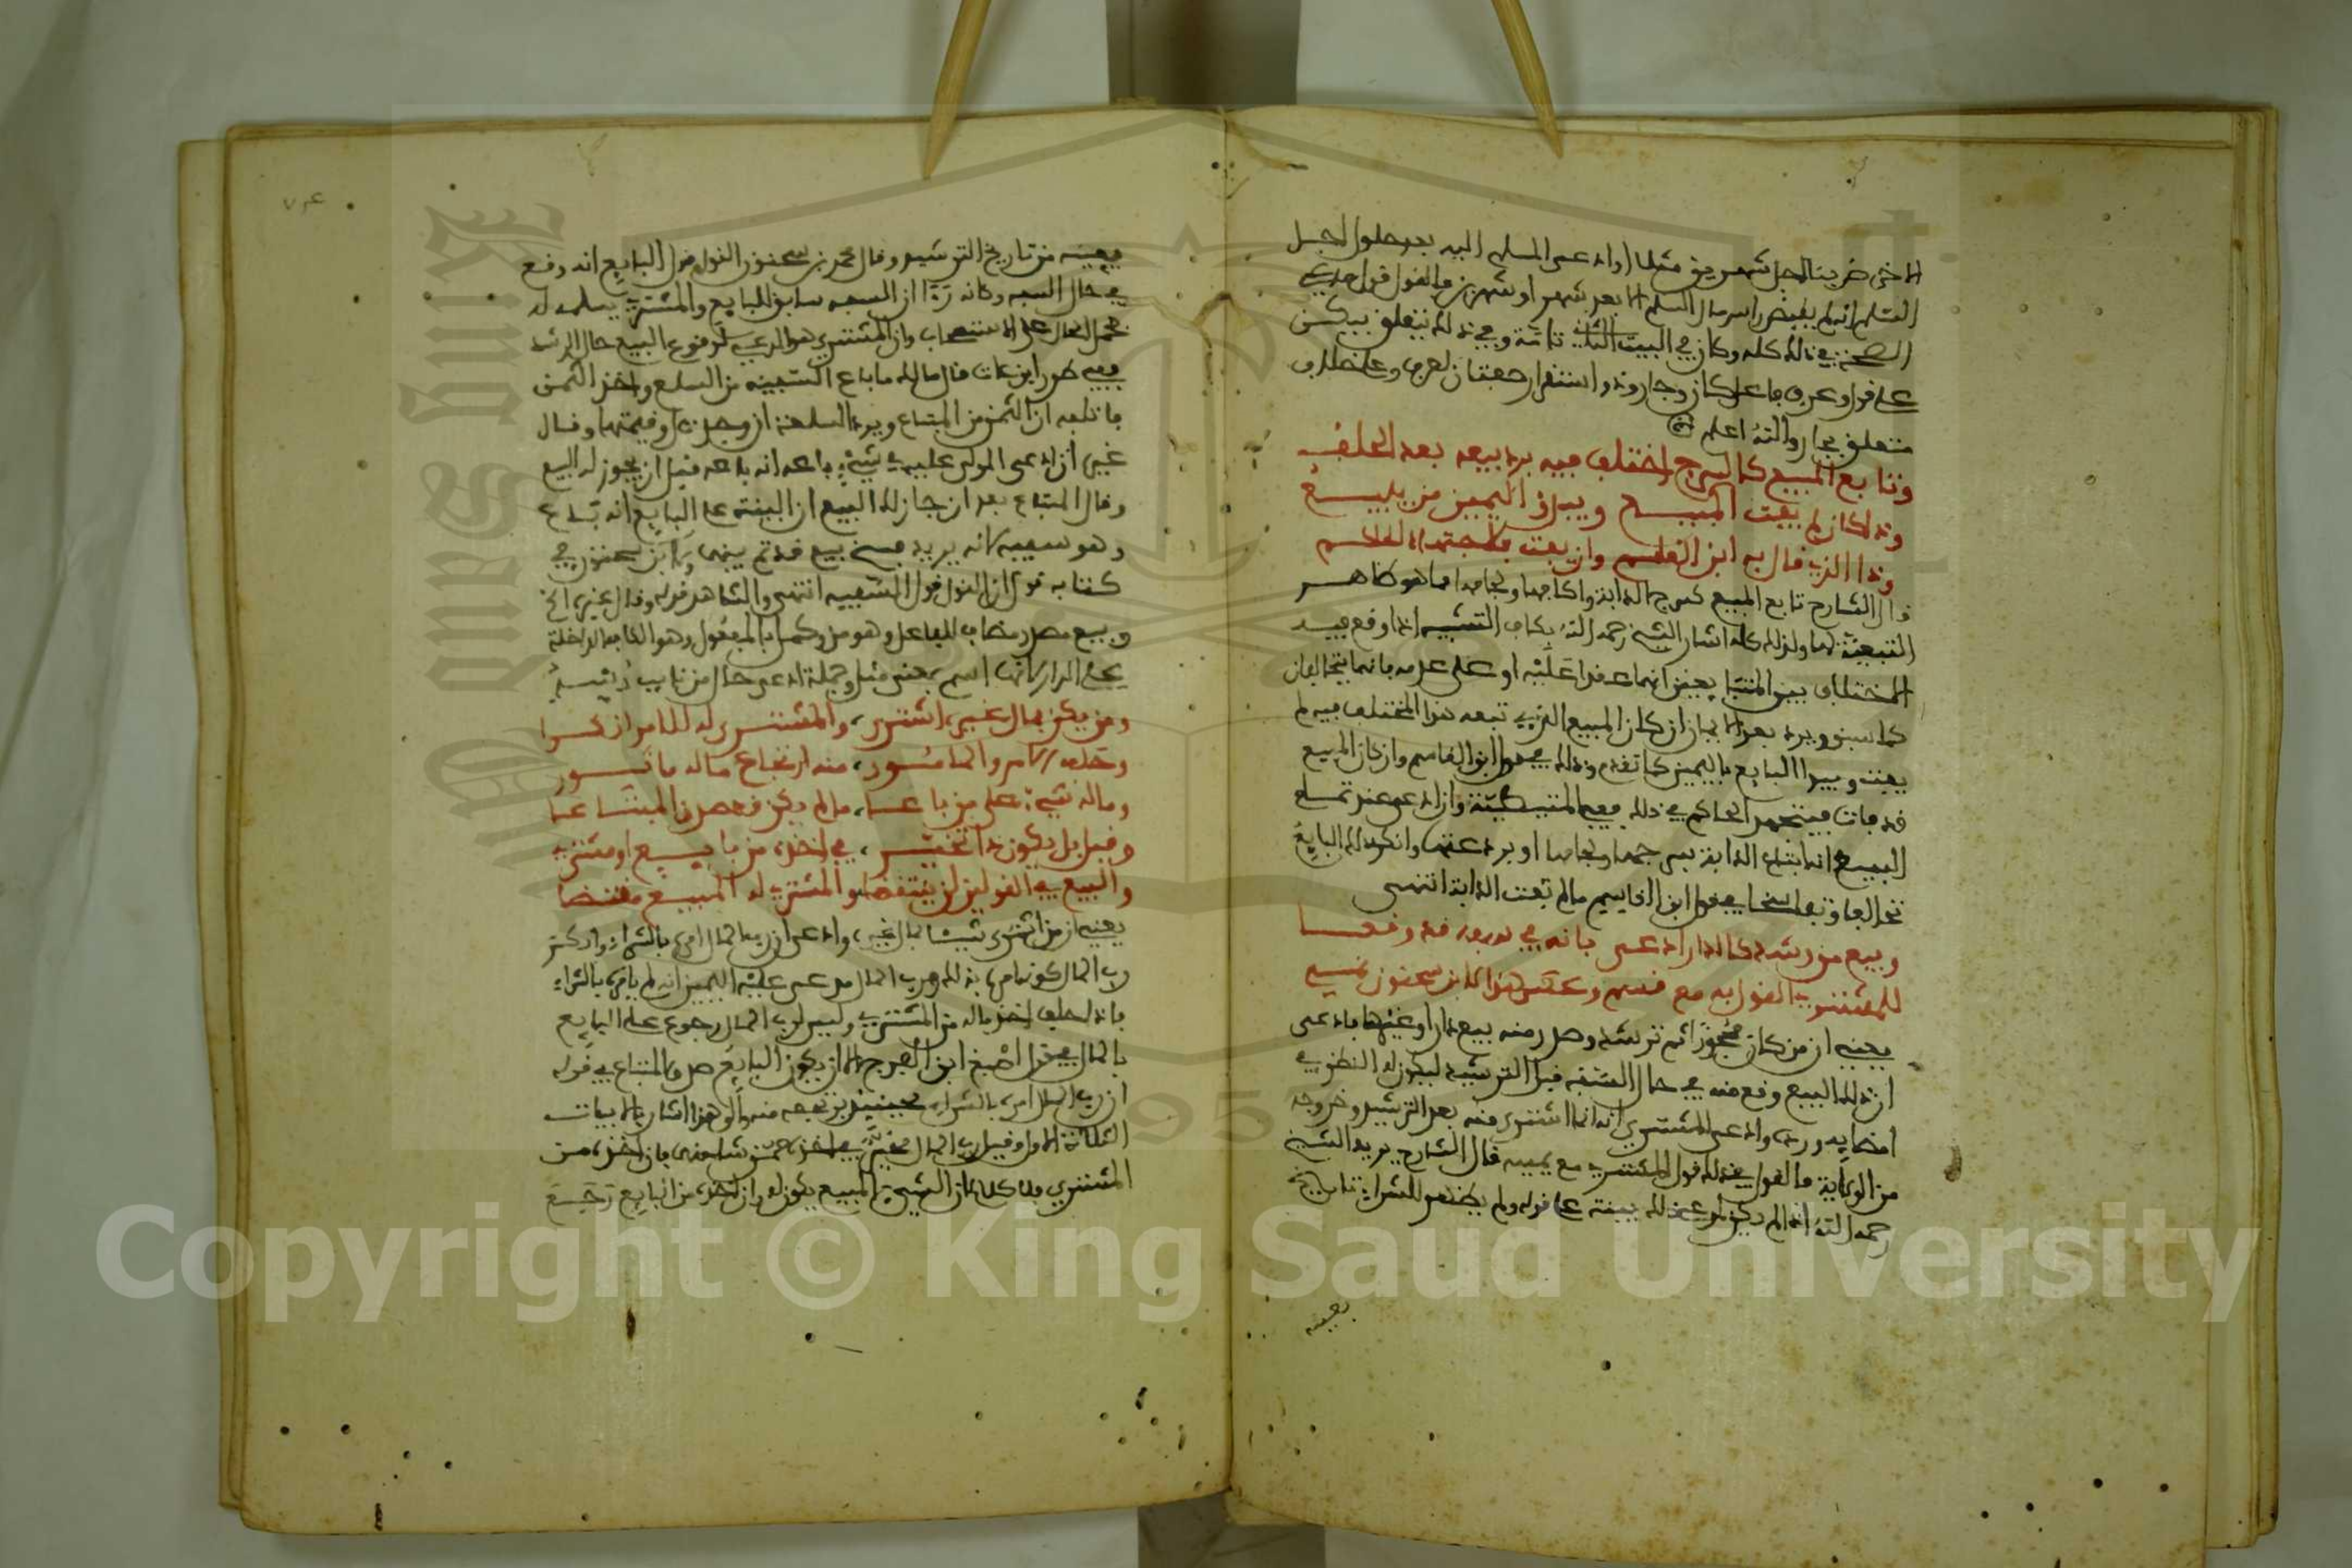 الاخرى ضربنا لاجل شهرين مثلا وادعى المسلم اليه بعد حلول لاجل
المسلم انه لم يقبض راس مال السلم الا بعد شهر او شهرين فالقول قول مدعي
الصحة في ذلك كله وكان في البيت الثاني تامة وفي ذلك يتعلق بيكن
على قول وعرف فاعل كان وجار وذو استقرار صفتان لعرف وعلى خلاف
متعلق بجار والله اعلم
وتابع المبيع كالسرج اختلف فيه يرد بيعه بعد الحلف
وذاك ان لم يفت المبيع ويبدؤ اليمين من يبيع
وذا الذي قال به ابن القاسم وان يفت فلاجتهاد الحاكم
قال الشارح تابع المبيع كسرج الدابة واكافها ولجامها مما هو ظاهر
التبعية لها ولذلك كله اشار الشيخ رحمه الله بكاف التشبيه اذا وقع فيه
الاختلاف بين المتبايعين انهما عقدا عليه او على عدمه فانهما يتحالفان
كما سبق ويرد بعد الايمان ان كان المبيع الذي تبعه هذا المختلف فيه لم
يفت ويبدا البايع باليمين كما تقدم وذلك في قول ابن القاسم وان كان المبيع
قد فات فيجتهد الحاكم في ذلك ففي المتيطية وان ادعى عند تسليم
المبيع انه ابتاع الدابة بسرجها ولجامها او بردعتها وانكر ذلك البايع
تحالفا وتفاسخا في قول ابن القاسم ما لم تفت الدابة انتهى
وبيع من رشد كالدار ادعى بانه في سفه قد وقعا
للمشتري القول به مع قسم وعكس هذا لابن سحنون نمي
يعني ان من كان محجورا ثم ترشد وصدر منه بيع دار او غيرها فادعى
ان ذلك البيع وقع منه في حال السفه قبل الترشيد ليكون له النظر في
امضايه ورده وادعى المشتري انه انما اشترى منه بعد الترشيد وخروجه
من الولاية فالقول في ذلك قول المشتري مع يمينه قال الشارح يريد الشيخ
رحمه الله اذا لم يكن لمدعي ذلك بينة على قوله ولم يظهر للشراء تاريخ
يعينه
يعينه من تاريخ الترشيد وقال محمد بن سحنون القول قول البايع انه وقع
في حال السفه وكانه رءا ان السفه سابق للبايع والمشتري يسلمه له
فحمل الحال على الاستصحاب وان المشتري هو المدعي لوقوع البيع حال الرشد
ففي طرر ابن عات قال مالك ما باع السفيه من السلع واخذ الثمن
فاتلفه ان الثمن من المبتاع ويرد السلعة ان وجدت او قيمتها وقال
غيره ان ادعى المولى عليه في شيء باعه انه باعه قبل ان يجوز له البيع
وقال المبتاع بعد ان جاز لك البيع ان البينة على البايع انه باع
وهو سفيه لانه يريد فسخ بيع قد تم بينهما ولابن سحنون في
كتابه قول ان القول قول السفيه انتهى والشاهد قوله وقال غيره الخ
وبيع مصدر مضاف للفاعل وهو من وكمل بالمفعول وهو الكاف الداخلة
على الدار لانها اسم بمعنى مثل وجملة ادعى حال من نايب رشد
ومن يكن بمال غيره اشترى والمشترى له للامر انكرا
وحلف الامر والمامور منه ارتجاع ماله ماثور
وماله شيء على من باعا ما لم يكن قد صدق المبتاعا
وقيل بل يكون ذا تخير في اخذه من بايع او مشتر
والبيع في القولين لن ينتقضا والمشتري له المبيع مقتضى
يعني ان من اشترى شيئا بمال غيره وادعى ان رب المال امره بالشراء وانكر
رب المال كونه امره بذلك ورب المال مدعى عليه اليمين انه لم يامره بالشراء
فاذا حلف اخذ ماله من المشتري وليس لرب المال رجوع على البايع
بالمال في قول اصبغ ابن الفرج الا ان يكون البايع صدق المبتاع في قوله
ان رب المال امره بالشراء فحينئذ يرتجعه منه والى هذا اشار بالابيات
الثلاثة الاول وقيل رب المال مخير في اخذه ممن شاء منهما فان اخذه من
المشتري فلا كلام ان الشيء المبيع يكون له وان اخذه من البايع رجع